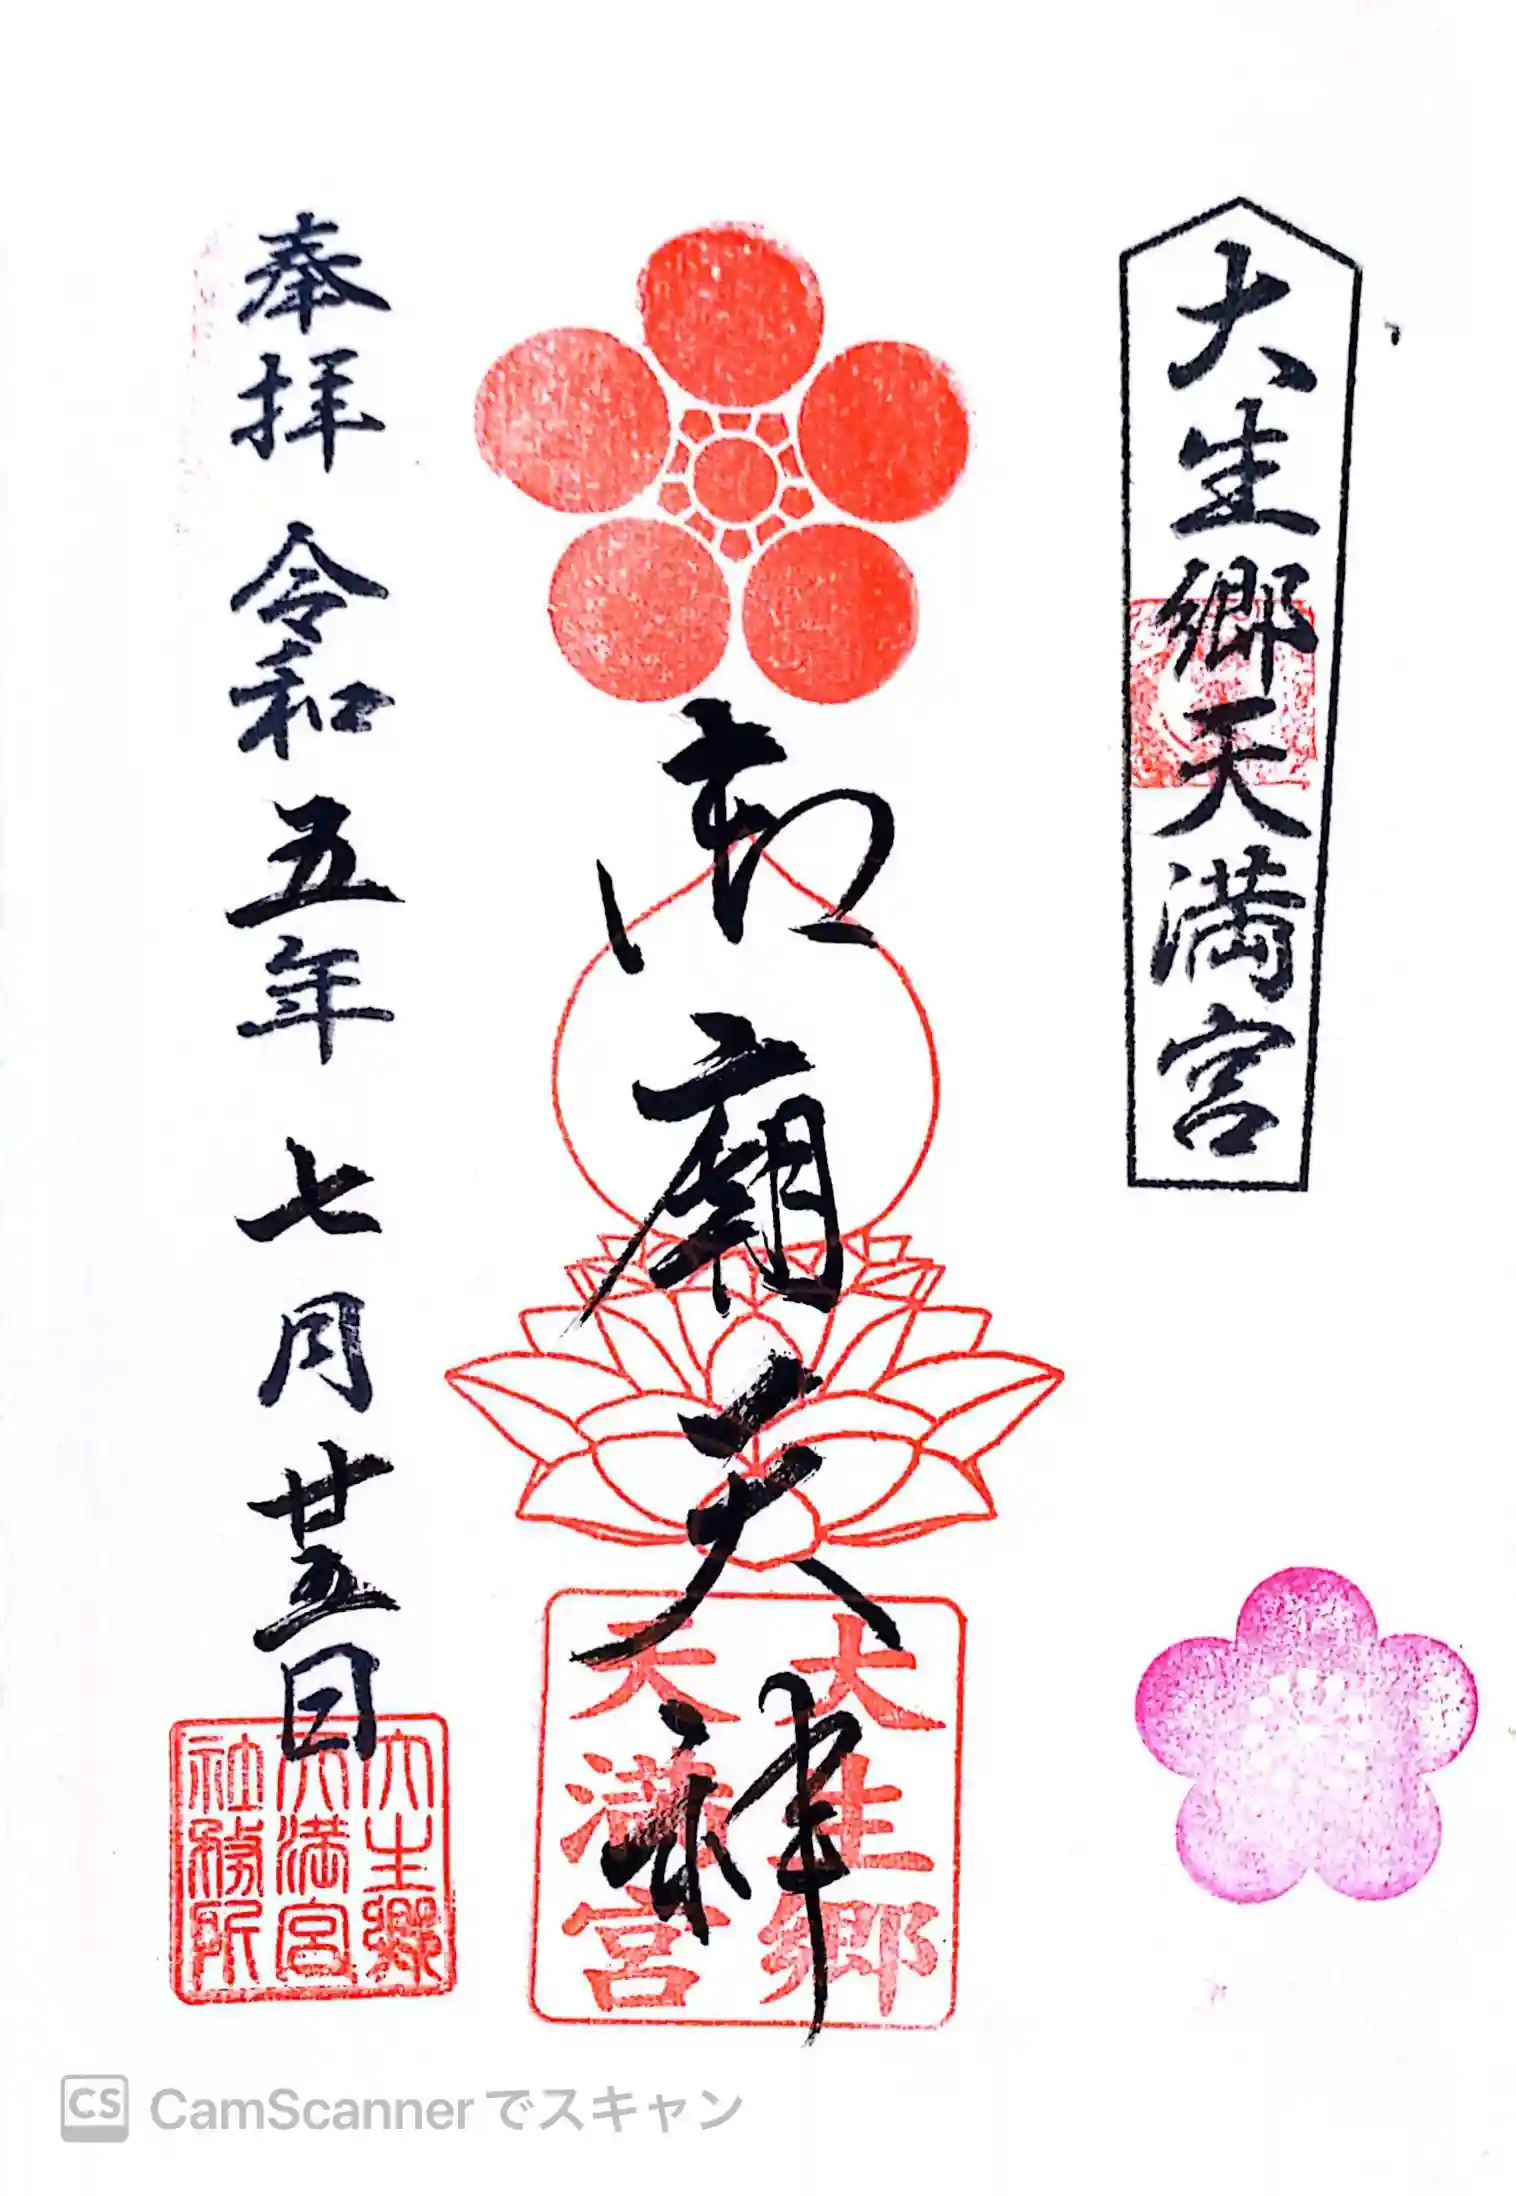 大生郷天満宮
御廟天神
大生郷
天満宮
奉拝 令和五年 七月廿五日
大生郷
天満宮
社務所
CS CamScannerでスキャン